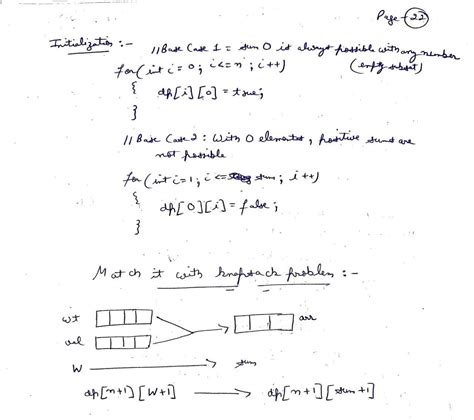 Page-22
Initialization :-
//Base Case 1 = sum 0 is always possible with any number
(empty subset)
for(int i=0; i<=n; i++)
{
dp[i][0]=true;
}
//Base Case 2: With 0 elements, positive sums are
not possible
for(int i=1; i<= sum; i++)
{
dp[0][i]=false;
}
Match it with knapsack problem :-
wt
arr
val
W → sum
dp[n+1][W+1] → dp[n+1][sum+1]